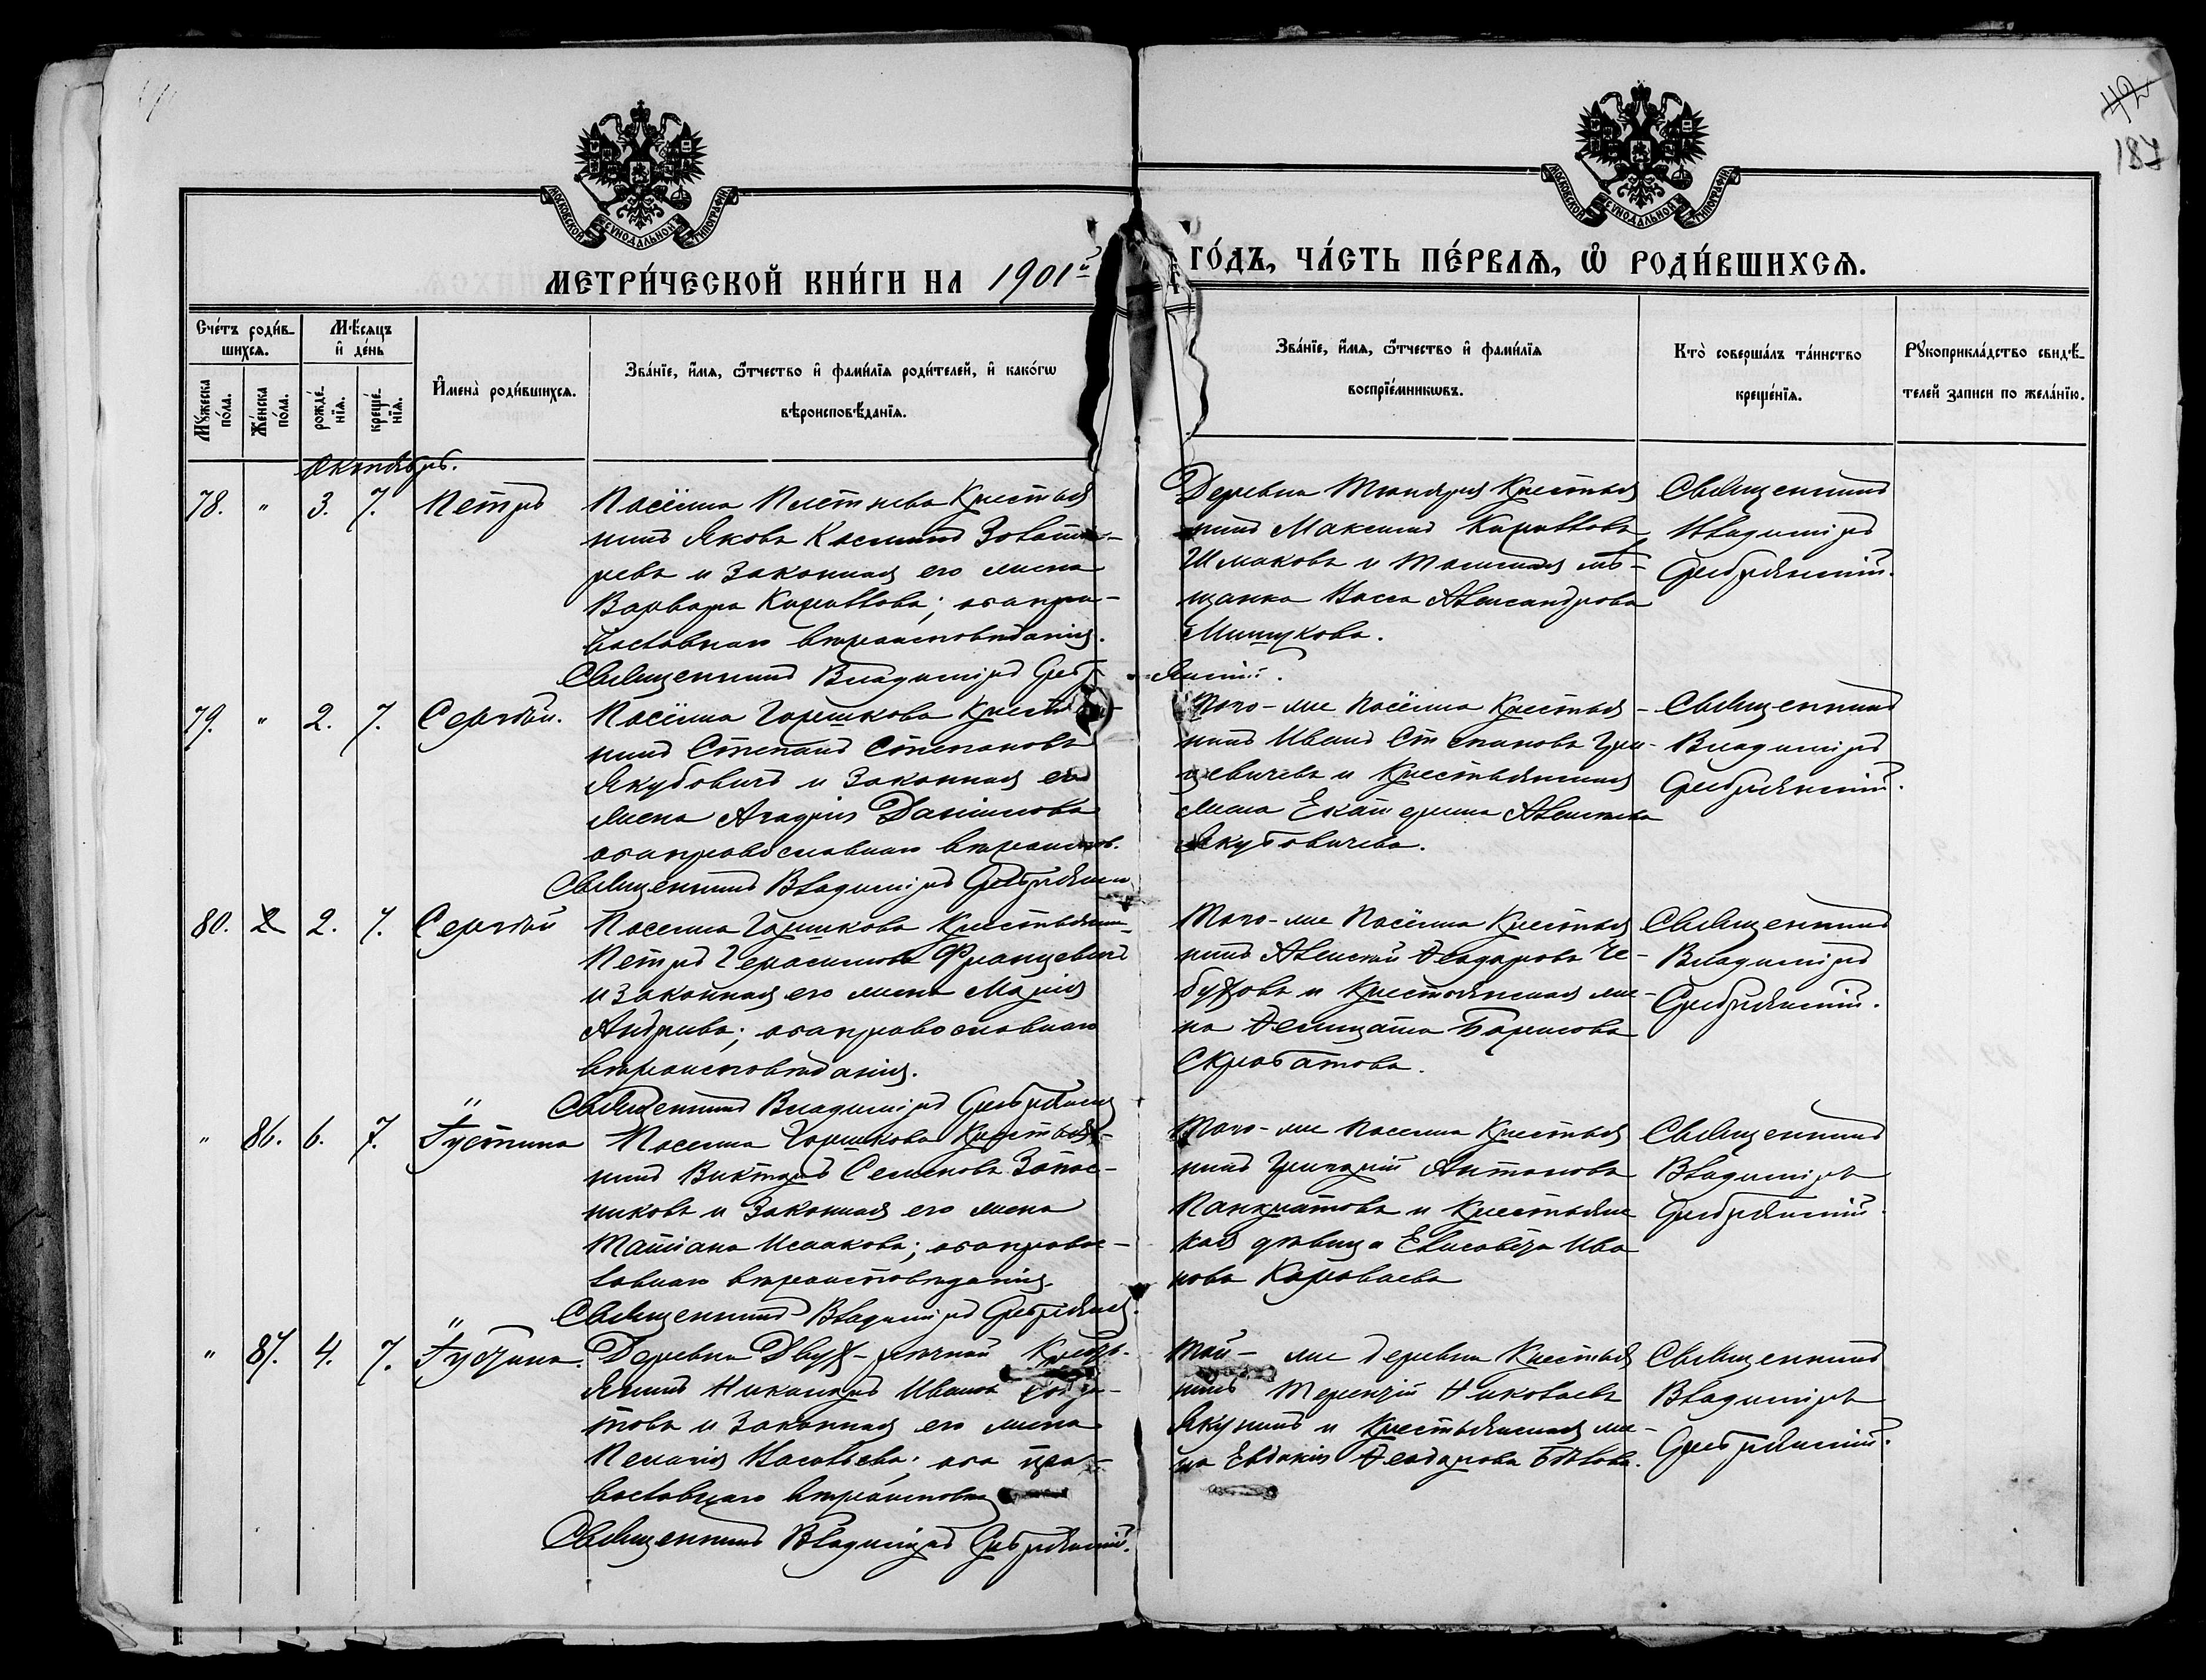 42
187
МОСКОВСКОЙ СѴНОДАЛЬНОЙ ТИПОГРАФІИ
МОСКОВСКОЙ СѴНОДАЛЬНОЙ ТИПОГРАФІИ
МЕТРИ́ЧЕСКОЙ КНИ́ГИ НА 1901й ГО́ДЪ, ЧА́СТЬ ПЕ́РВАѦ, Ѽ РОДИ́ВШИХСѦ.
Сче́тъ роди́в-
шихсѧ.
Мꙋ́жеска
по́ла.
Же́нска
по́ла.
Мѣ́сѧцъ
и҆ де́нь
рожде́-
нїѧ.
креще́-
нїѧ.
И҆мена̀ роди́вшихсѧ.
Зва́нїе, и҆́мѧ, ѻ҆́тчество и҆ фами́лїѧ роди́телей, и҆ како́гѡ
вѣроисповѣ́данїѧ.
Зва́нїе, и҆́мѧ, ѻ҆́тчество и҆ фами́лїѧ
воспрїе́мникѡвъ.
Кто̀ соверша́лъ та́инство
креще́нїѧ.
Рꙋкоприкла́дство свидѣ́-
телей записи по жела́нїю.
Октябрь.
78. " 3. 7. Петръ
Посёлка Плетнева Крестья
нинъ Яковъ Косминъ
ревъ и законная его жена
Варвара Кириллова; оба пра-
вославнаго вѣроисповѣданія.
Священникъ Владиміръ Сребрянскій.
Деревни Крестья
нинъ Максимъ Кирилловъ
Шмаковъ и мѣ-
щанка Васса Александрова
Мишукова.
Священникъ
Владиміръ
Сребрянскій.
79. " 2. 7. Сергѣй.
Посёлка Горешкова Крестья-
нинъ Степанъ Степановъ
Якубовичъ и законная его
жена Даніилова
оба православнаго вѣроиспов.
Священникъ Владиміръ Сребрянски
Того-же посёлка Крестья-
нинъ Иванъ Степановъ Гри-
цевичевъ и Крестьянская
жена Екатерина Алексѣева
Якубовичева.
Священникъ
Владиміръ
Сребрянскій.
80. 2 2. 7. Сергѣй
Поселка Горешкова Крестьянин-
Петръ Герасимовъ Францевичъ
и законная его жена Марія
Андреева; оба православнаго
вѣроисповѣданія.
Священникъ Владиміръ Сребрянск
Того-же посёлка Крестья
нинъ Алексѣй Ѳеодоровъ Че-
буховъ и Крестьянская же-
на Ѳелицата Борисова
Скробатова.
Священникъ
Владиміръ
Сребрянскій.
" 86. 6. 7. Іустина
Поселка Горешкова Крестья-
нинъ Викторъ Семеновъ Запас-
никовъ и законная его жена
Татіана Исаакова; оба правос-
лавнаго вѣроисповѣданія
Священникъ Владиміръ Сребрянск.
Того-же поселка Крестья
нинъ Григорій Антоновъ
Панкратовъ и Крестьянс
кая дѣвица Елисавета Ива
нова Короваева
Священникъ
Владиміръ
Сребрянскій.
" 87. 4. 7. Іустина.
Деревни Двух-рѣчной Кресть-
янинъ Никаноръ Ивановъ
товъ и законная его жена
Пелагія Васильева; оба пра-
вославнаго вѣроисповѣд
Священникъ Владиміръ Сребрянскій.
Той-же деревни Крестья
нинъ Терентій Николаевъ
Якунинъ и Крестьянская же-
на Евдокія Ѳеодорова Бѣлова.
Священникъ
Владиміръ
Сребрянскій.